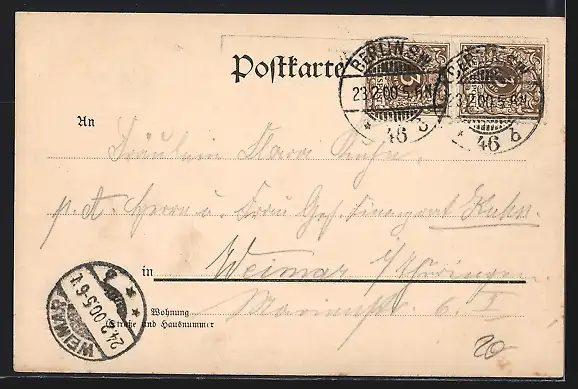 Postkarte
BERLIN S.W.
23.2.00.5-6N.
46 b
BERLIN S.W.
23.2.00.5-6N.
* 46 b
An
Fräulein Klara Kuhn.
p. A. Herrn u. Frau Geh. Finanzrat Kuhn.
in Weimar i/Thüringen.
Wohnung Marienstr. 6. I
Straße und Hausnummer
WEIMAR
24.2.00.5-6V.